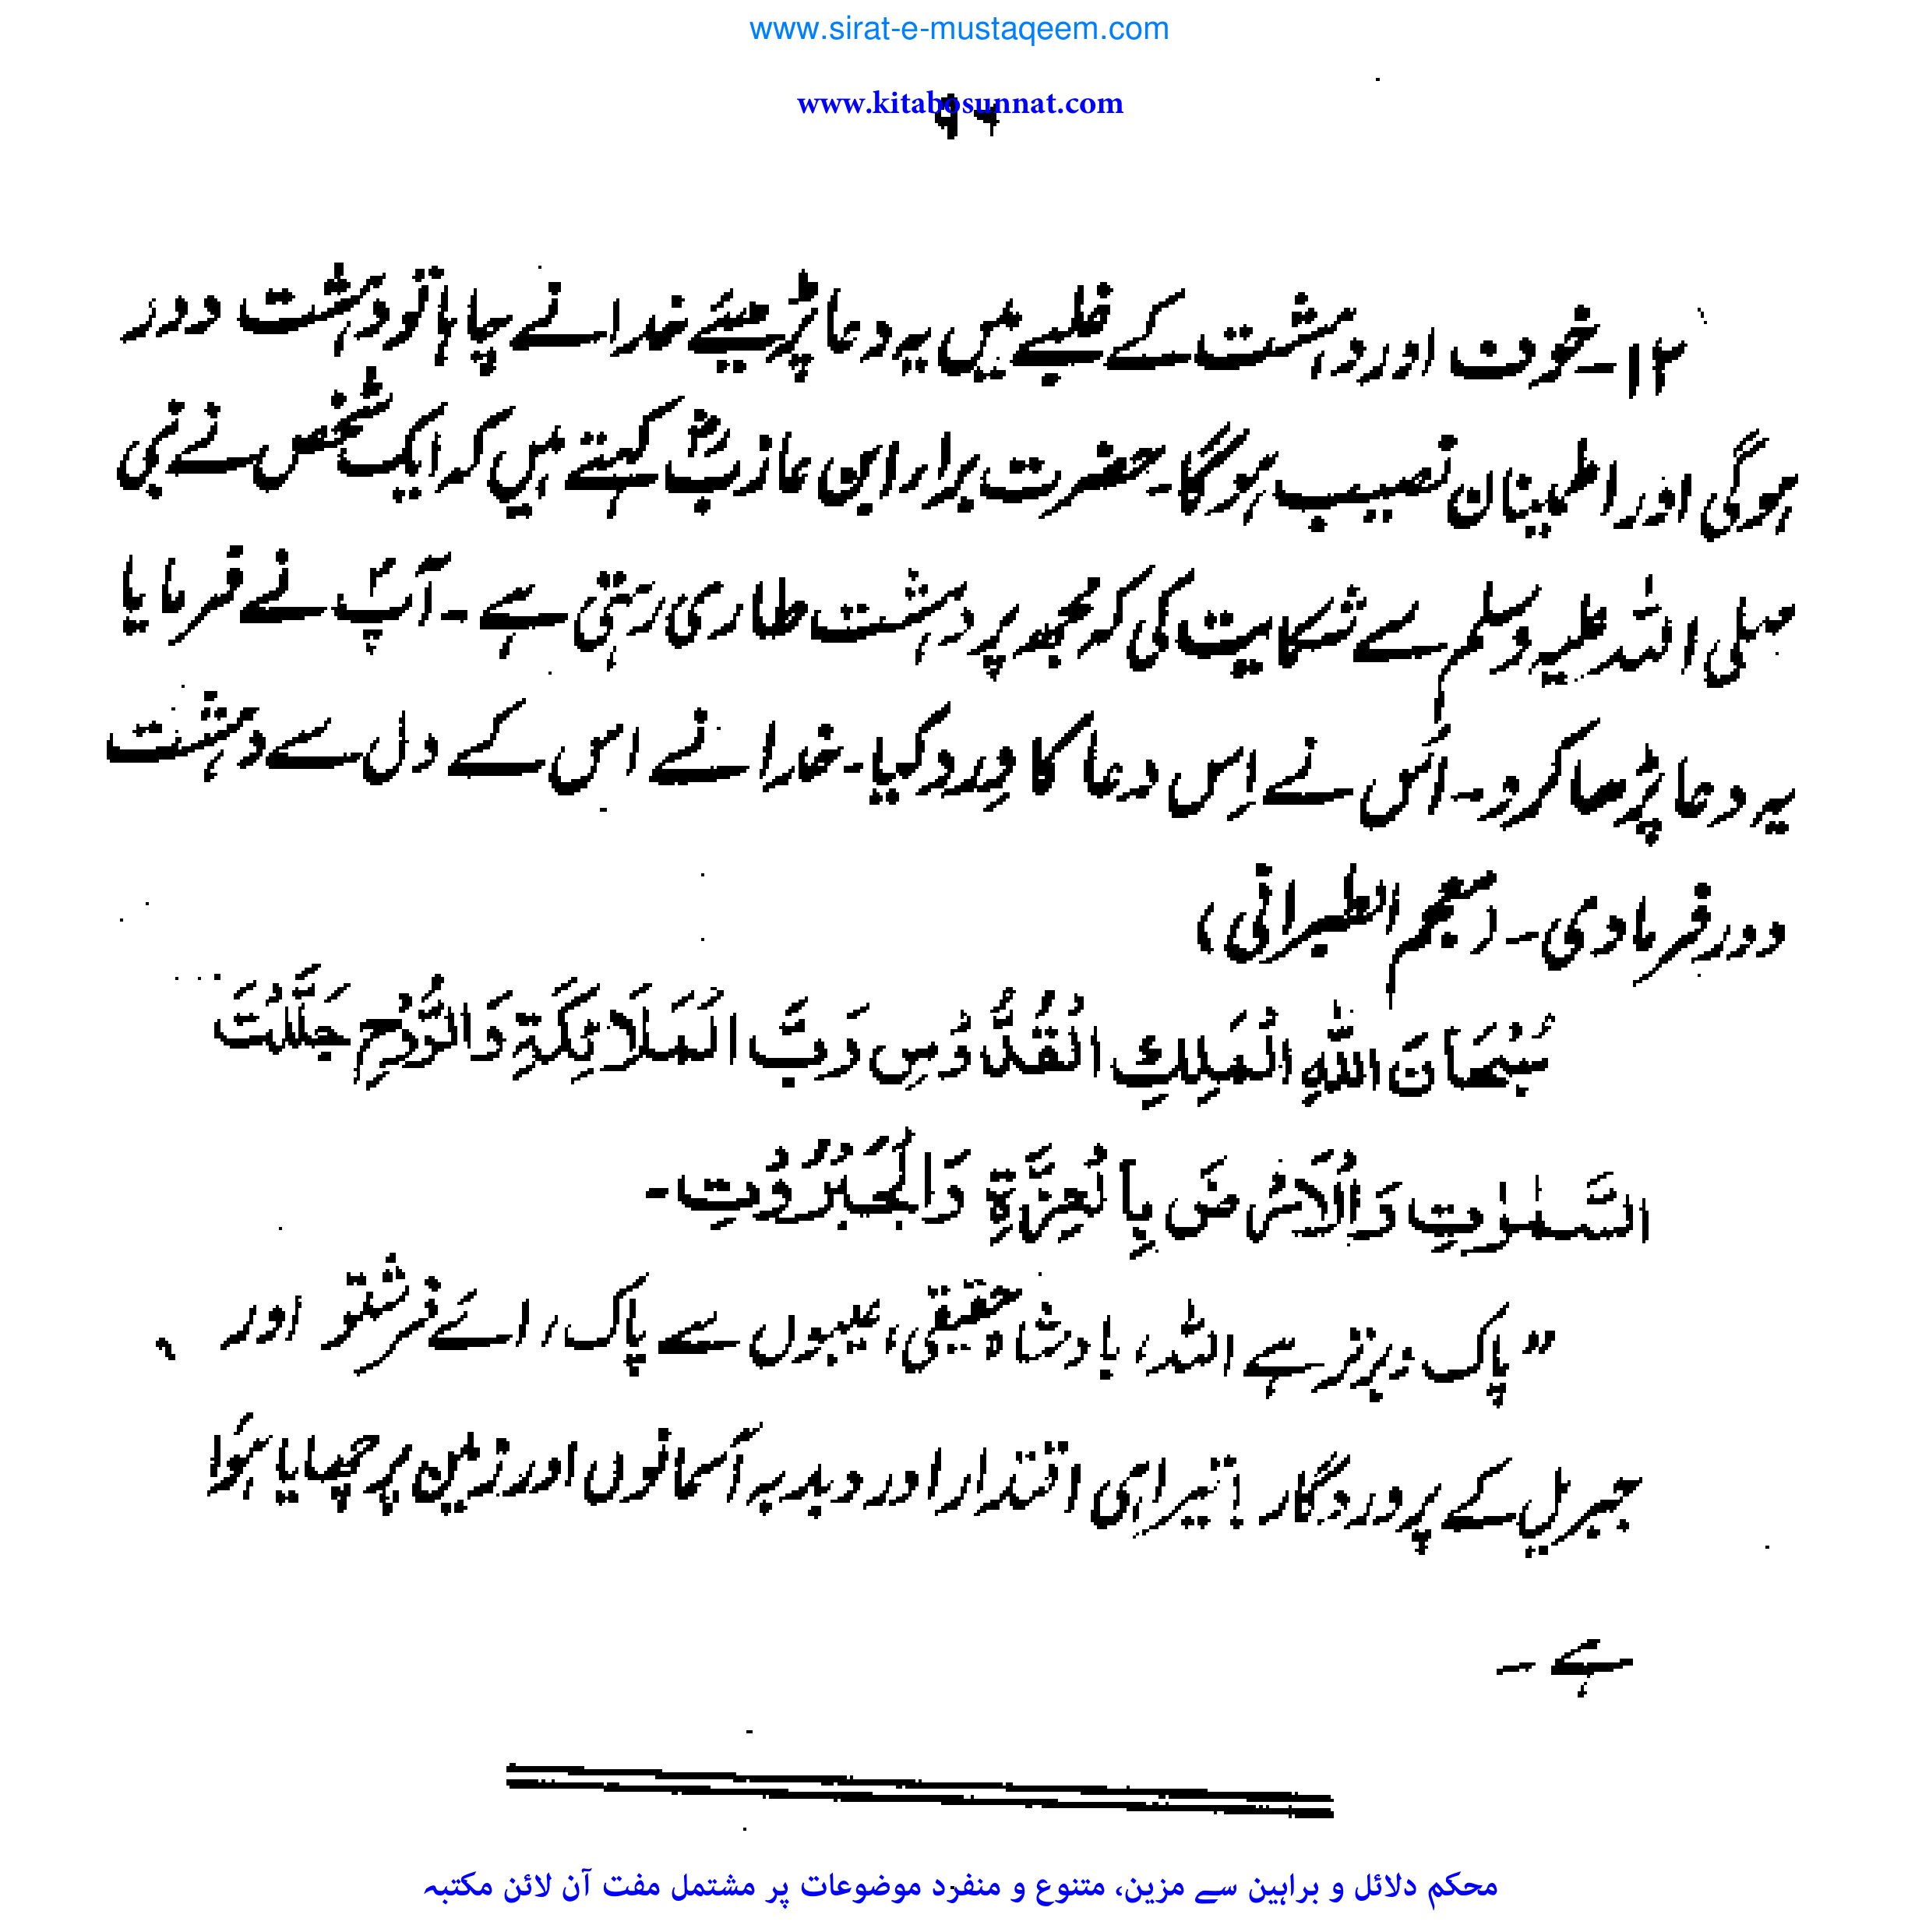 www.sirat-e-mustaqeem.com
www.kitabosunnat.com
۱۲۔ خوف اور دہشت کے غلبے میں یہ دعا پڑھیئے خدا نے چاہا تو دہشت دور
ہوگی اور اطمینان نصیب ہوگا۔ حضرت براء ابن عازبؓ کہتے ہیں کہ ایک شخص نے نبی
صلی اللہ علیہ وسلم سے شکایت کی کہ مجھ پر دہشت طاری رہتی ہے۔ آپؐ نے فرمایا
یہ دعا پڑھا کرو۔ اُس نے اِس دعا کا وِرد کیا۔ خدا نے اس کے دل سے دہشت
دور فرما دی۔ (معجم الطبرانی)
سُبْحَانَ اللّٰهِ الْمَلِكِ الْقُدُّوْسِ رَبَّ الْمَلَائِكَةِ وَالرُّوْحِ جَلَّلْتَ
السَّمٰوٰتِ وَالْاَرْضَ بِالْعِزَّةِ وَالْجَبَرُوْتِ۔
”پاک و برتر ہے اللہ، بادشاہ حقیقی، عیبوں سے پاک، اے فرشتو اور
جبریل کے پروردگار! تیرا ہی اقتدار اور دبدبہ آسمانوں اور زمین پر چھایا ہوَا
ہے ۔
محکم دلائل و براہین سے مزین، متنوع و منفرد موضوعات پر مشتمل مفت آن لائن مکتبہ